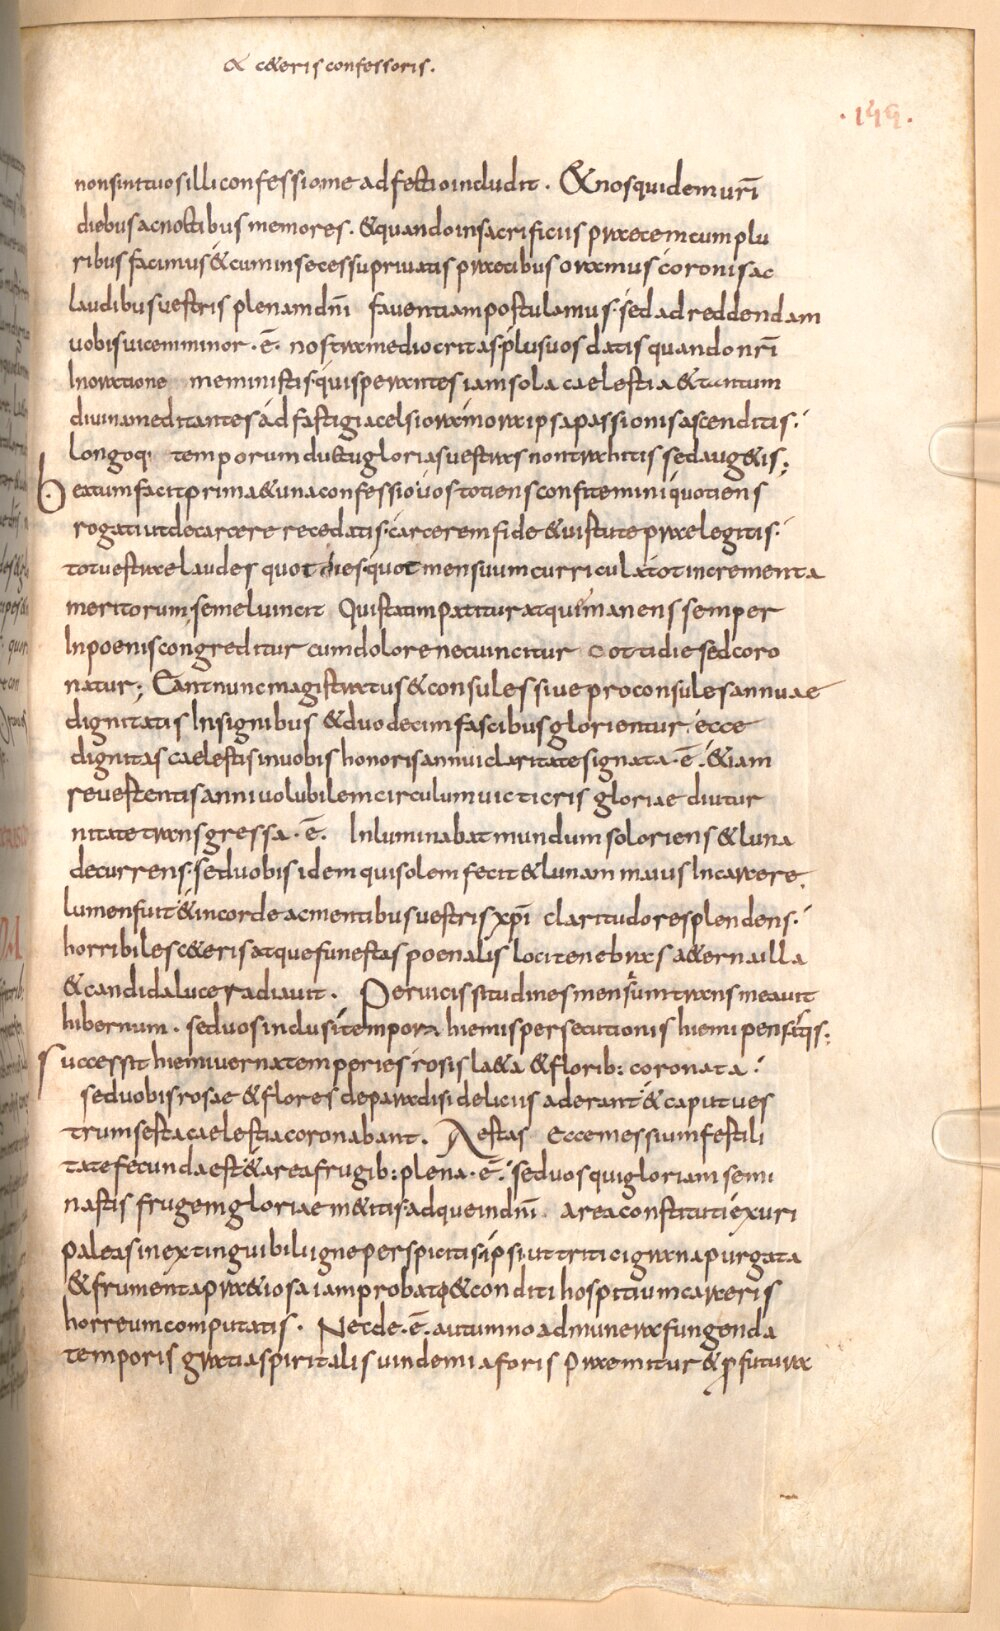 & c&eris confessoris.
·149·
nonsint tuos illi confessione adfectio includit. &nos quidem ur̅i
diebus ac noctibus memores. & quando in sacrificiis praecem cum plu
ribus facimus & cum in secessu priuatis praecibus oramus coronis ac
laudibus uestris plenam dn̅i fauentiam postulamus· sed ad reddendam
uobis uicem minor ·e̅· nostra mediocritas· plus uos datis quando nr̅i
In oratione meministis· qui sperantes iam sola caelestia & tantum
diuina meditantes ad fastigia celsiora mora ipsa passionis ascenditis·
longoq; temporum ductu glorias uestras non trahitis sed aug&is;
beatum facit prima & una confessio· uos totiens confitemini quotiens
rogati ut de carcere recedatis· carcerem fide & uirtute praelegitis·
tot uestrae laudes quot dies· quot mensuum curricula tot incrementa
meritorum; semel uincit Qui statim patitur at qui manens semper
In poenis congreditur cum dolore nec uincitur cottidie sed coro
natur; Eant nunc magistratus & consules siue proconsules annuae
dignitatis Insignibus & duodecim fascibus glorientur· ecce
dignitas caelestis in uobis honoris annui claritate signata ·e̅· & iam
reuertentis anni uolubilem circulum uictricis gloriae diutur
nitate transgressa ·e̅· Inluminabat mundum sol oriens & luna
decurrens· sed uobis idem qui solem fecit & lunam maius In carcere
lumen fuit & in corde ac mentibus uestris xp̅i claritudo resplendens·
horribiles c&eris atque funestas poenalis loci tenebras a&erna illa
& candida luce radiauit. Per uicissitudines mensium transmeauit
hibernum. sed uos inclusi tempora hiemis persecutionis hiemi pensatis;
successit hiemi uerna temperies rosis la&a & florib: coronata·
sed uobis rosae & flores de paradisi deliciis aderant & caput ues
trum serta caelestia coronabant. Aestas Ecce messium fertili
tate fecunda est & area frugib: plena ·e̅· sed uos qui gloriam semi
nastis frugem gloriae m&itis· adque in dn̅i area constituti exuri
paleas inextinguibili igne perspicitis· ipsi ut tritici grana purgata
& frumenta pr&iosa iam probata & conditi hospitium carceris
horreum computatis. Nec de ·e̅· autumno ad munera fungenda
temporis gratia spiritalis uindemia foris praemitur & p̱futura